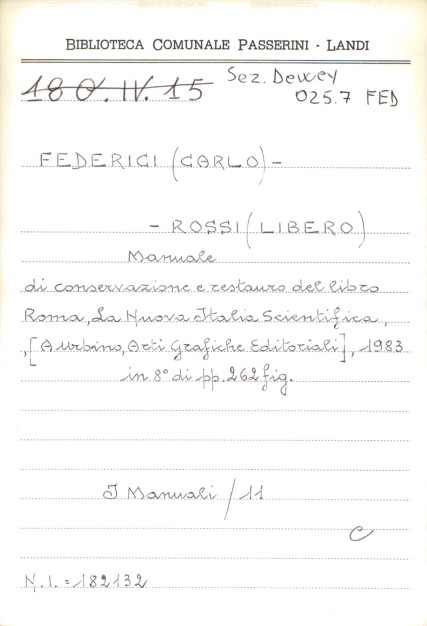 BIBLIOTECA COMUNALE PASSERINI - LANDI
180.IV.15 Sez. Dewey
025.7 FED
FEDERICI (CARLO) -
- ROSSI (LIBERO)
Manuale
di conservazione e restauro del libro
Roma, La Nuova Italia Scientifica,
, [A Urbino, Arti Grafiche Editoriali], 1983
in 8° di pp. 262 fig.
I Manuali / 11
C
N.I. = 182132